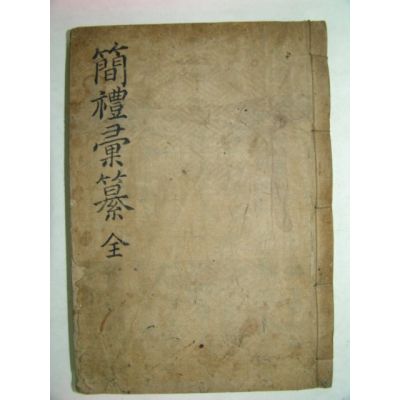 簡禮彙纂 全